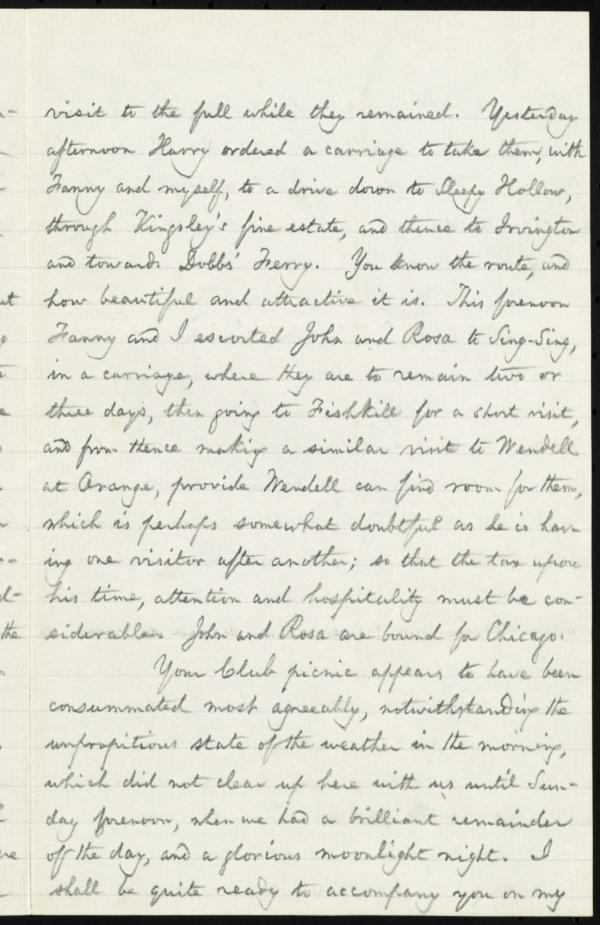 visit to the full while they remained. Yesterday
afternoon Harry ordered a carriage to take them, with
Fanny and myself, to a drive down to Sleepy Hollow,
through Kingsley's fine estate, and thence to Irvington
and towards Dobbs' Ferry. You know the route, and
how beautiful and attractive it is. This forenoon
Fanny and I escorted John and Rosa to Sing-Sing,
in a carriage, where they are to remain two or
three days, then going to Fishkill for a short visit,
and from thence making a similar visit to Wendell
at Orange, provide Wendell can find room for them,
which is perhaps somewhat doubtful as he is hav-
ing one visitor after another; so that the tax upon
his time, attention and hospitality must be con-
siderable. John and Rosa are bound for Chicago.
Your Club picnic appears to have been
consummated most agreeably, notwithstanding the
unpropitious state of the weather in the morning,
which did not clear up here with us until Sun-
day forenoon, when we had a brilliant remainder
of the day, and a glorious moonlight night. I
shall be quite ready to accompany you on my